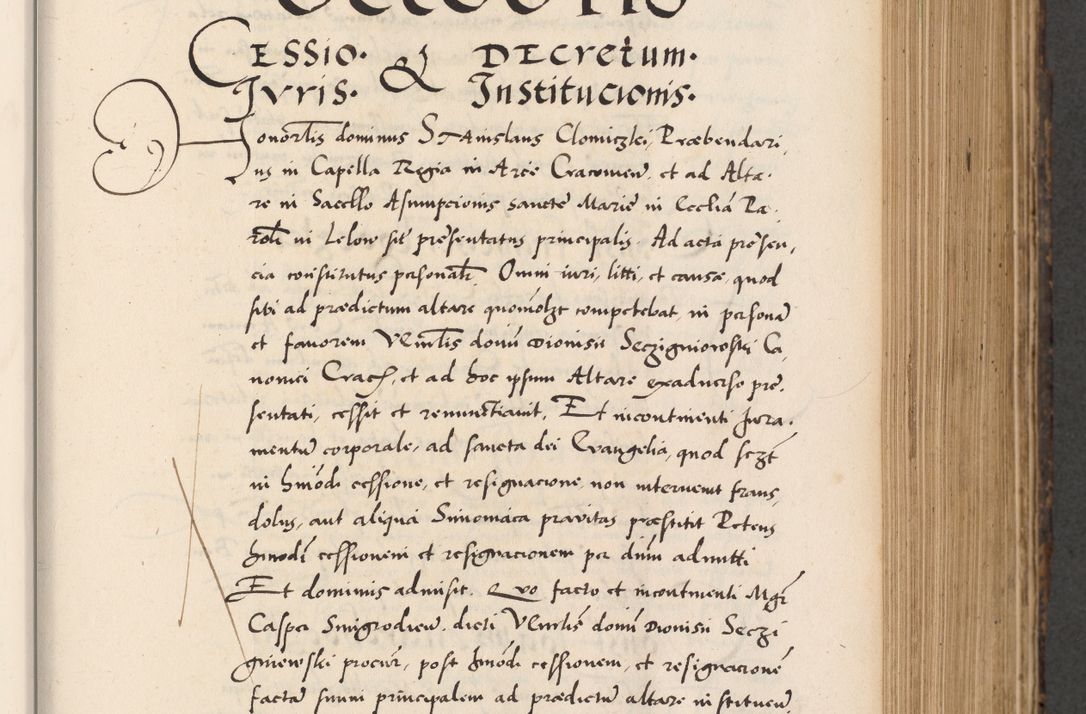 CESSIO· & DECretum·
Jvris· Institucionis·
Honorlis dominus STAnislaus Clomiczkei, Præbendari,
us in Capella Regia in Arce Cracovien̄, et ad Alta·
re in Sacello Assumpcionis sancte Marie in Ecclia Pa·
roli in Lelow sit presentatus principalis. Ad acta presen,
cia constitutus personalr. Omni iuri, litti, et causæ, quod
siti ad prædictum altare quomolzt competebat, in persona
et favorem Venlis domi Dionisii Seczigniowski Ca,
nonici Crac, et ad hoc ipsum Altare exaduerso pre,
sentati, cessit et renunctiauit, Et incontinenti Jura·
mentu corporale, ad sancta dei Evangelia, quod sczt
in hmodi cessione, et resignacione non intervenit fraus,
dolus, aut aliqua Simoniaca pravitas præstitit Petens
hmodi cessionem et resignacionem per dnm admitti
Et dominus admisit. Quo facto et incontinenti Mgr
Casper Smigrodien̄. dicti Venlis domi Dionisii Seczi
gniewski procur, post hmodi cessionem, et resignacione
factam suum principalem ad prædictu altare instituen̄